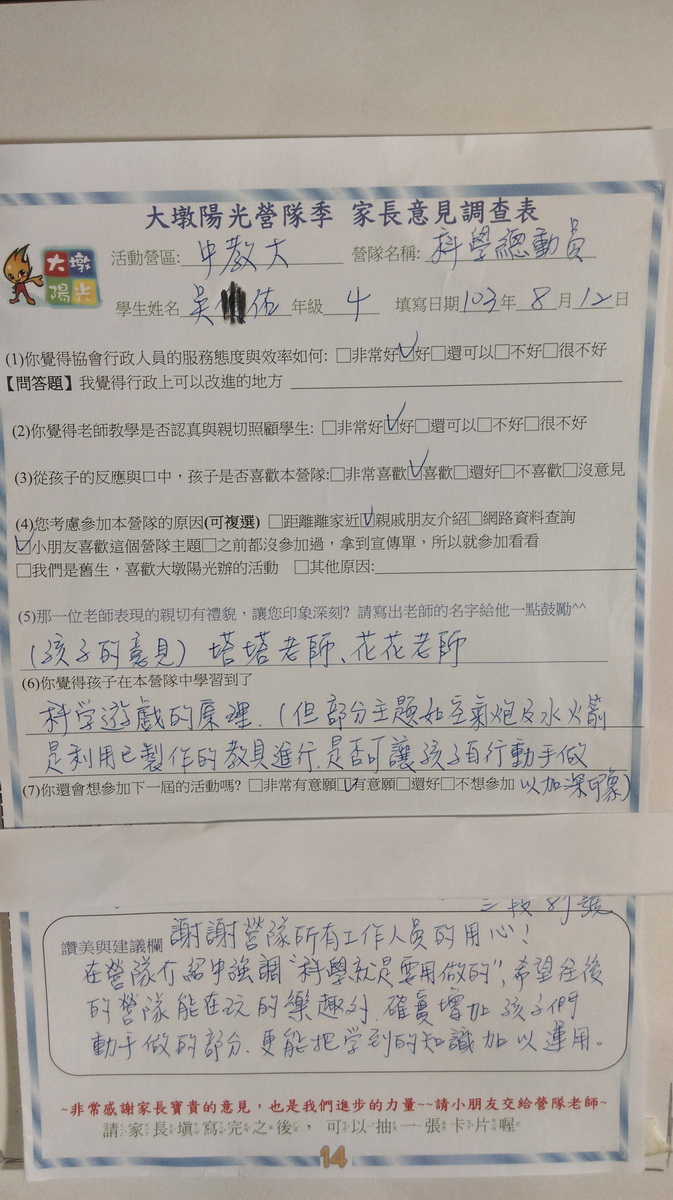 大墩陽光營隊季 家長意見調查表
大墩
陽光
活動營區: 中教大 營隊名稱: 科學總動員
學生姓名 吳 佑 年級 4 填寫日期103年 8 月 12 日
(1)你覺得協會行政人員的服務態度與效率如何: □非常好☑好□還可以□不好□很不好
【問答題】我覺得行政上可以改進的地方
(2)你覺得老師教學是否認真與親切照顧學生: □非常好☑好□還可以□不好□很不好
(3)從孩子的反應與口中，孩子是否喜歡本營隊:□非常喜歡☑喜歡□還好□不喜歡□沒意見
(4)您考慮參加本營隊的原因(可複選) □距離離家近☑親戚朋友介紹□網路資料查詢
☑小朋友喜歡這個營隊主題□之前都沒參加過，拿到宣傳單，所以就參加看看
□我們是舊生，喜歡大墩陽光辦的活動 □其他原因:
(5)那一位老師表現的親切有禮貌，讓您印象深刻? 請寫出老師的名字給他一點鼓勵^^
(孩子的意見) 塔塔老師、花花老師
(6)你覺得孩子在本營隊中學習到了
科学遊戲的原理. (但部分主題如空氣炮及水火箭
是利用已製作的教具進行.是否可讓孩子自行動手做
(7)你還會想參加下一屆的活動嗎? □非常有意願☑有意願□還好□不想參加 以加深印象)
讚美與建議欄 謝謝營隊所有工作人員的用心!
在營隊介紹中強調"科學就是要用做的",希望往後
的營隊能在玩的樂趣外.確實增加孩子們
動手做的部分.更能把学到的知識加以運用。
~非常感謝家長寶貴的意見，也是我們進步的力量~~請小朋友交給營隊老師~
請家長填寫完之後，可以抽一張卡片喔
14